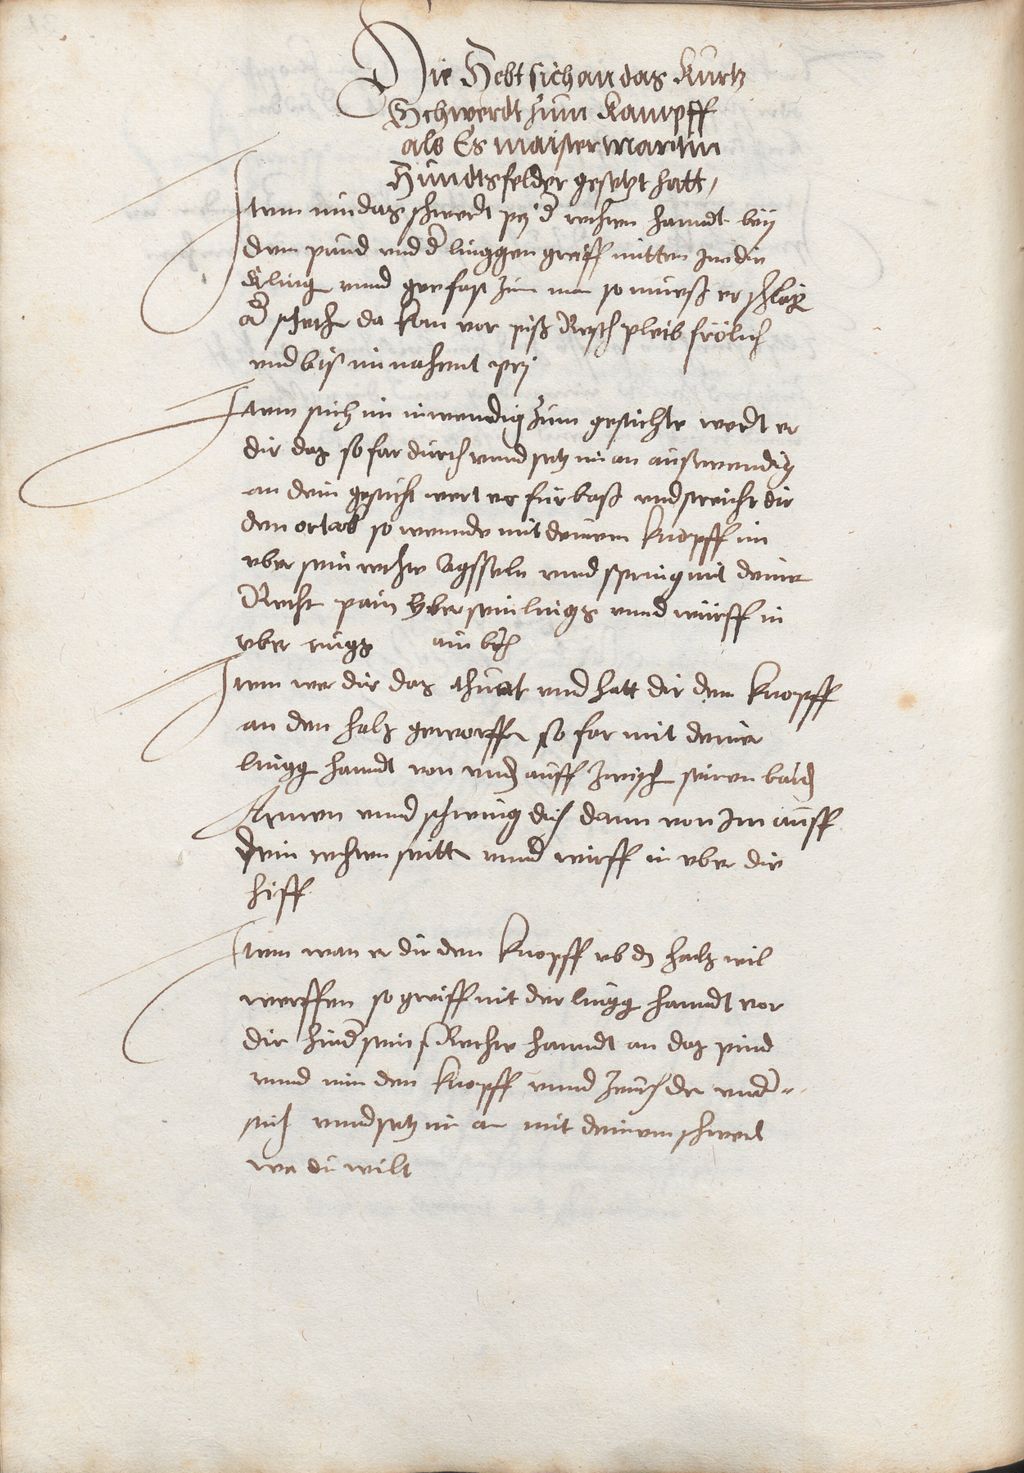 Die Hebt sich an das Kurtz
Schwerdt zum Kampff
als Es maister martin
Hundtsfelder gesetzt hatt,
Item nim das schwerdt pej d' rechten hanndt beÿ
dem pind und d' linggen greiff mitten Inn die
Kling vnnd gee fast zum man so muess er schlag
od' stechen da kom vor piss Resch pleib frölich
vnd bis im nahent pej
Item stich im inwendig zum gesichte werdt er
dir das so far durch vnnd setz im an ausswendig
an dem gesicht wert er fürbass und streicht dir
den ort ab so wennde mit deinem knopff im
vber sein rechte Agsseln vnnd spring mit deine
Recht pain Hber sein lings vnnd würff in
vber rugs ain bˀch
Item wer dir das thuat vnd hatt dir den knopff
an den hals geworffn so far mit deiner
lingg hanndt von vndn auff zwisch seinen baidn
Armen vnnd schwing dich dann von Im auff
dein rechten seittn vnnd wirff in vber die
hiff
Item wan er dir den knopff vb dn hals wil
werffen so greiff mit der lingg hanndt vor
dir hind' sein Rechte hanndt an das pind
vnnd nim den knopff vnnd zeuch de vnd'
sich vnnd setz im an mit deinem schwert
wa du wilt